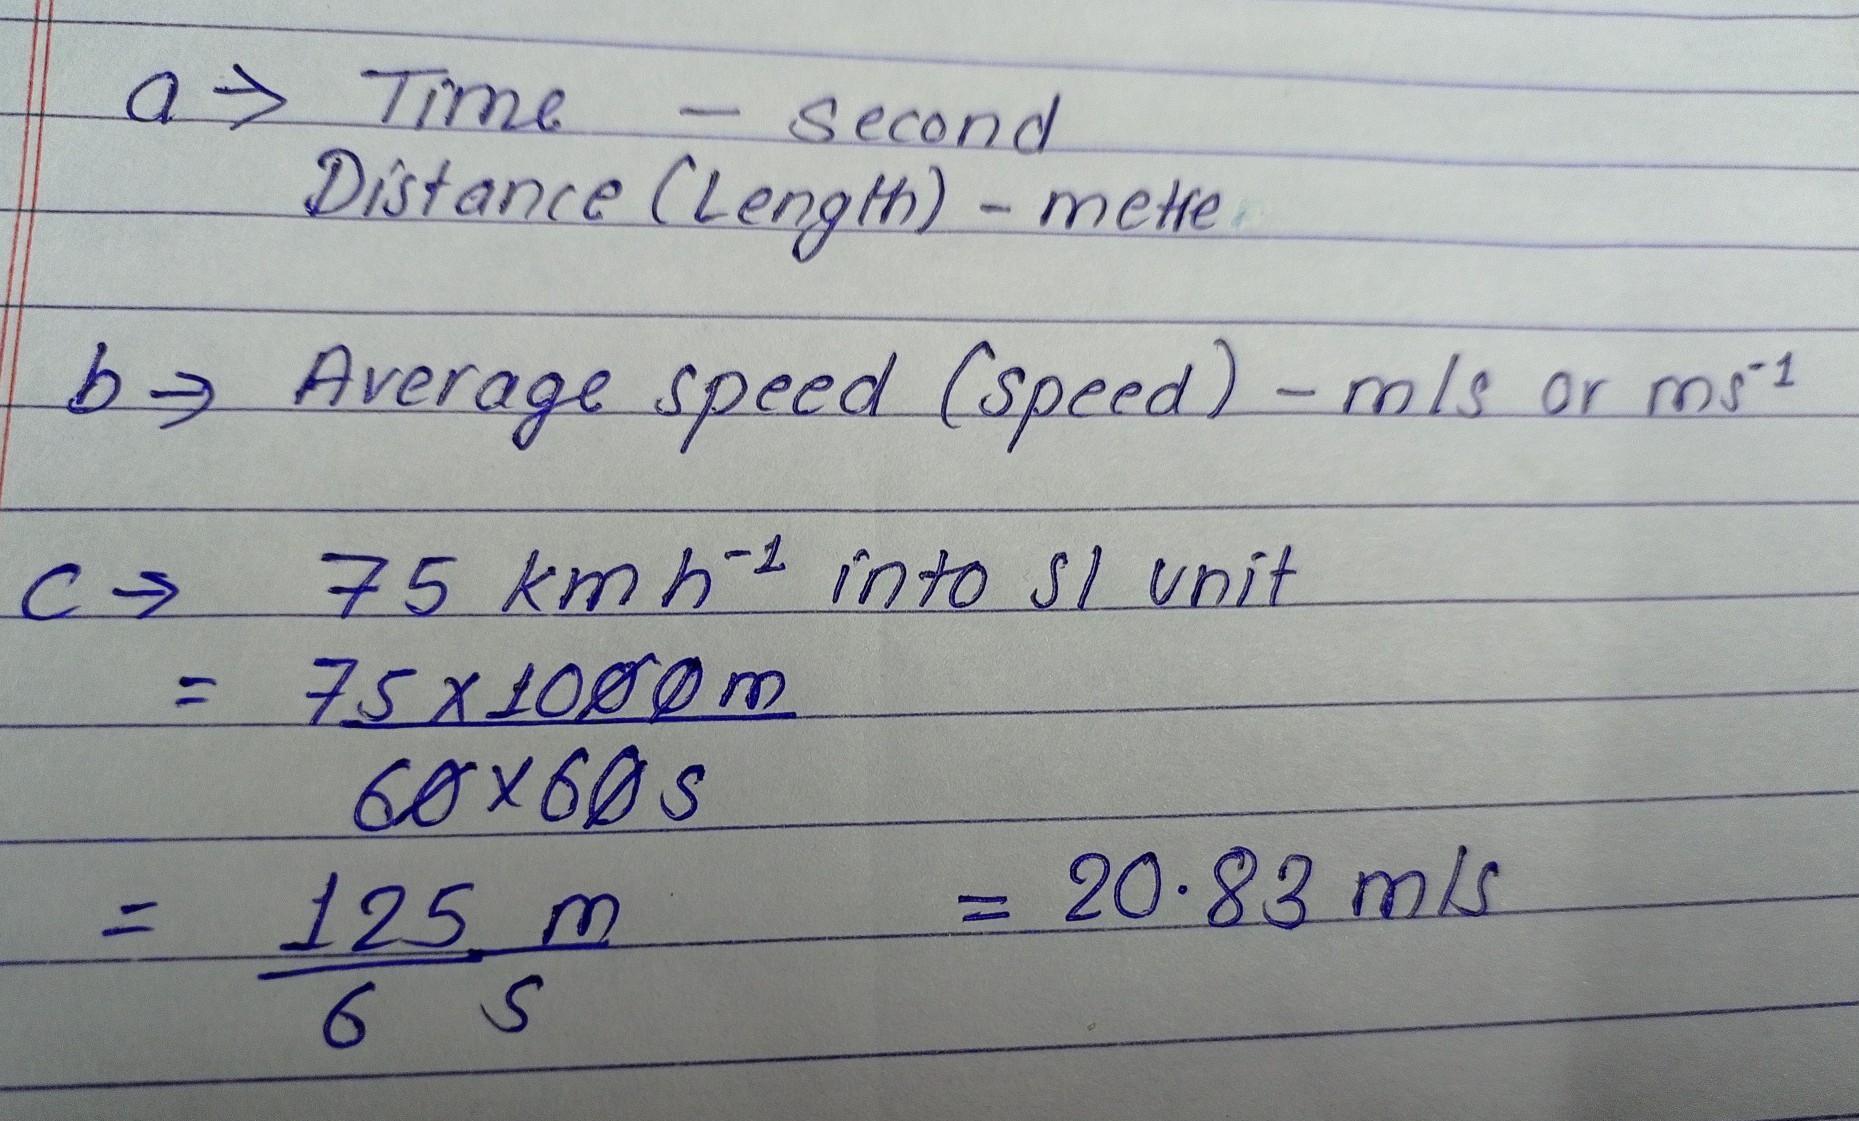 a → Time - second
Distance (Length) - metre
b → Average speed (speed) - m/s or ms⁻¹
c → 75 km h⁻¹ into SI unit
= 75 x 1000 m
60 x 60 s
= 125 m = 20.83 m/s
6 s